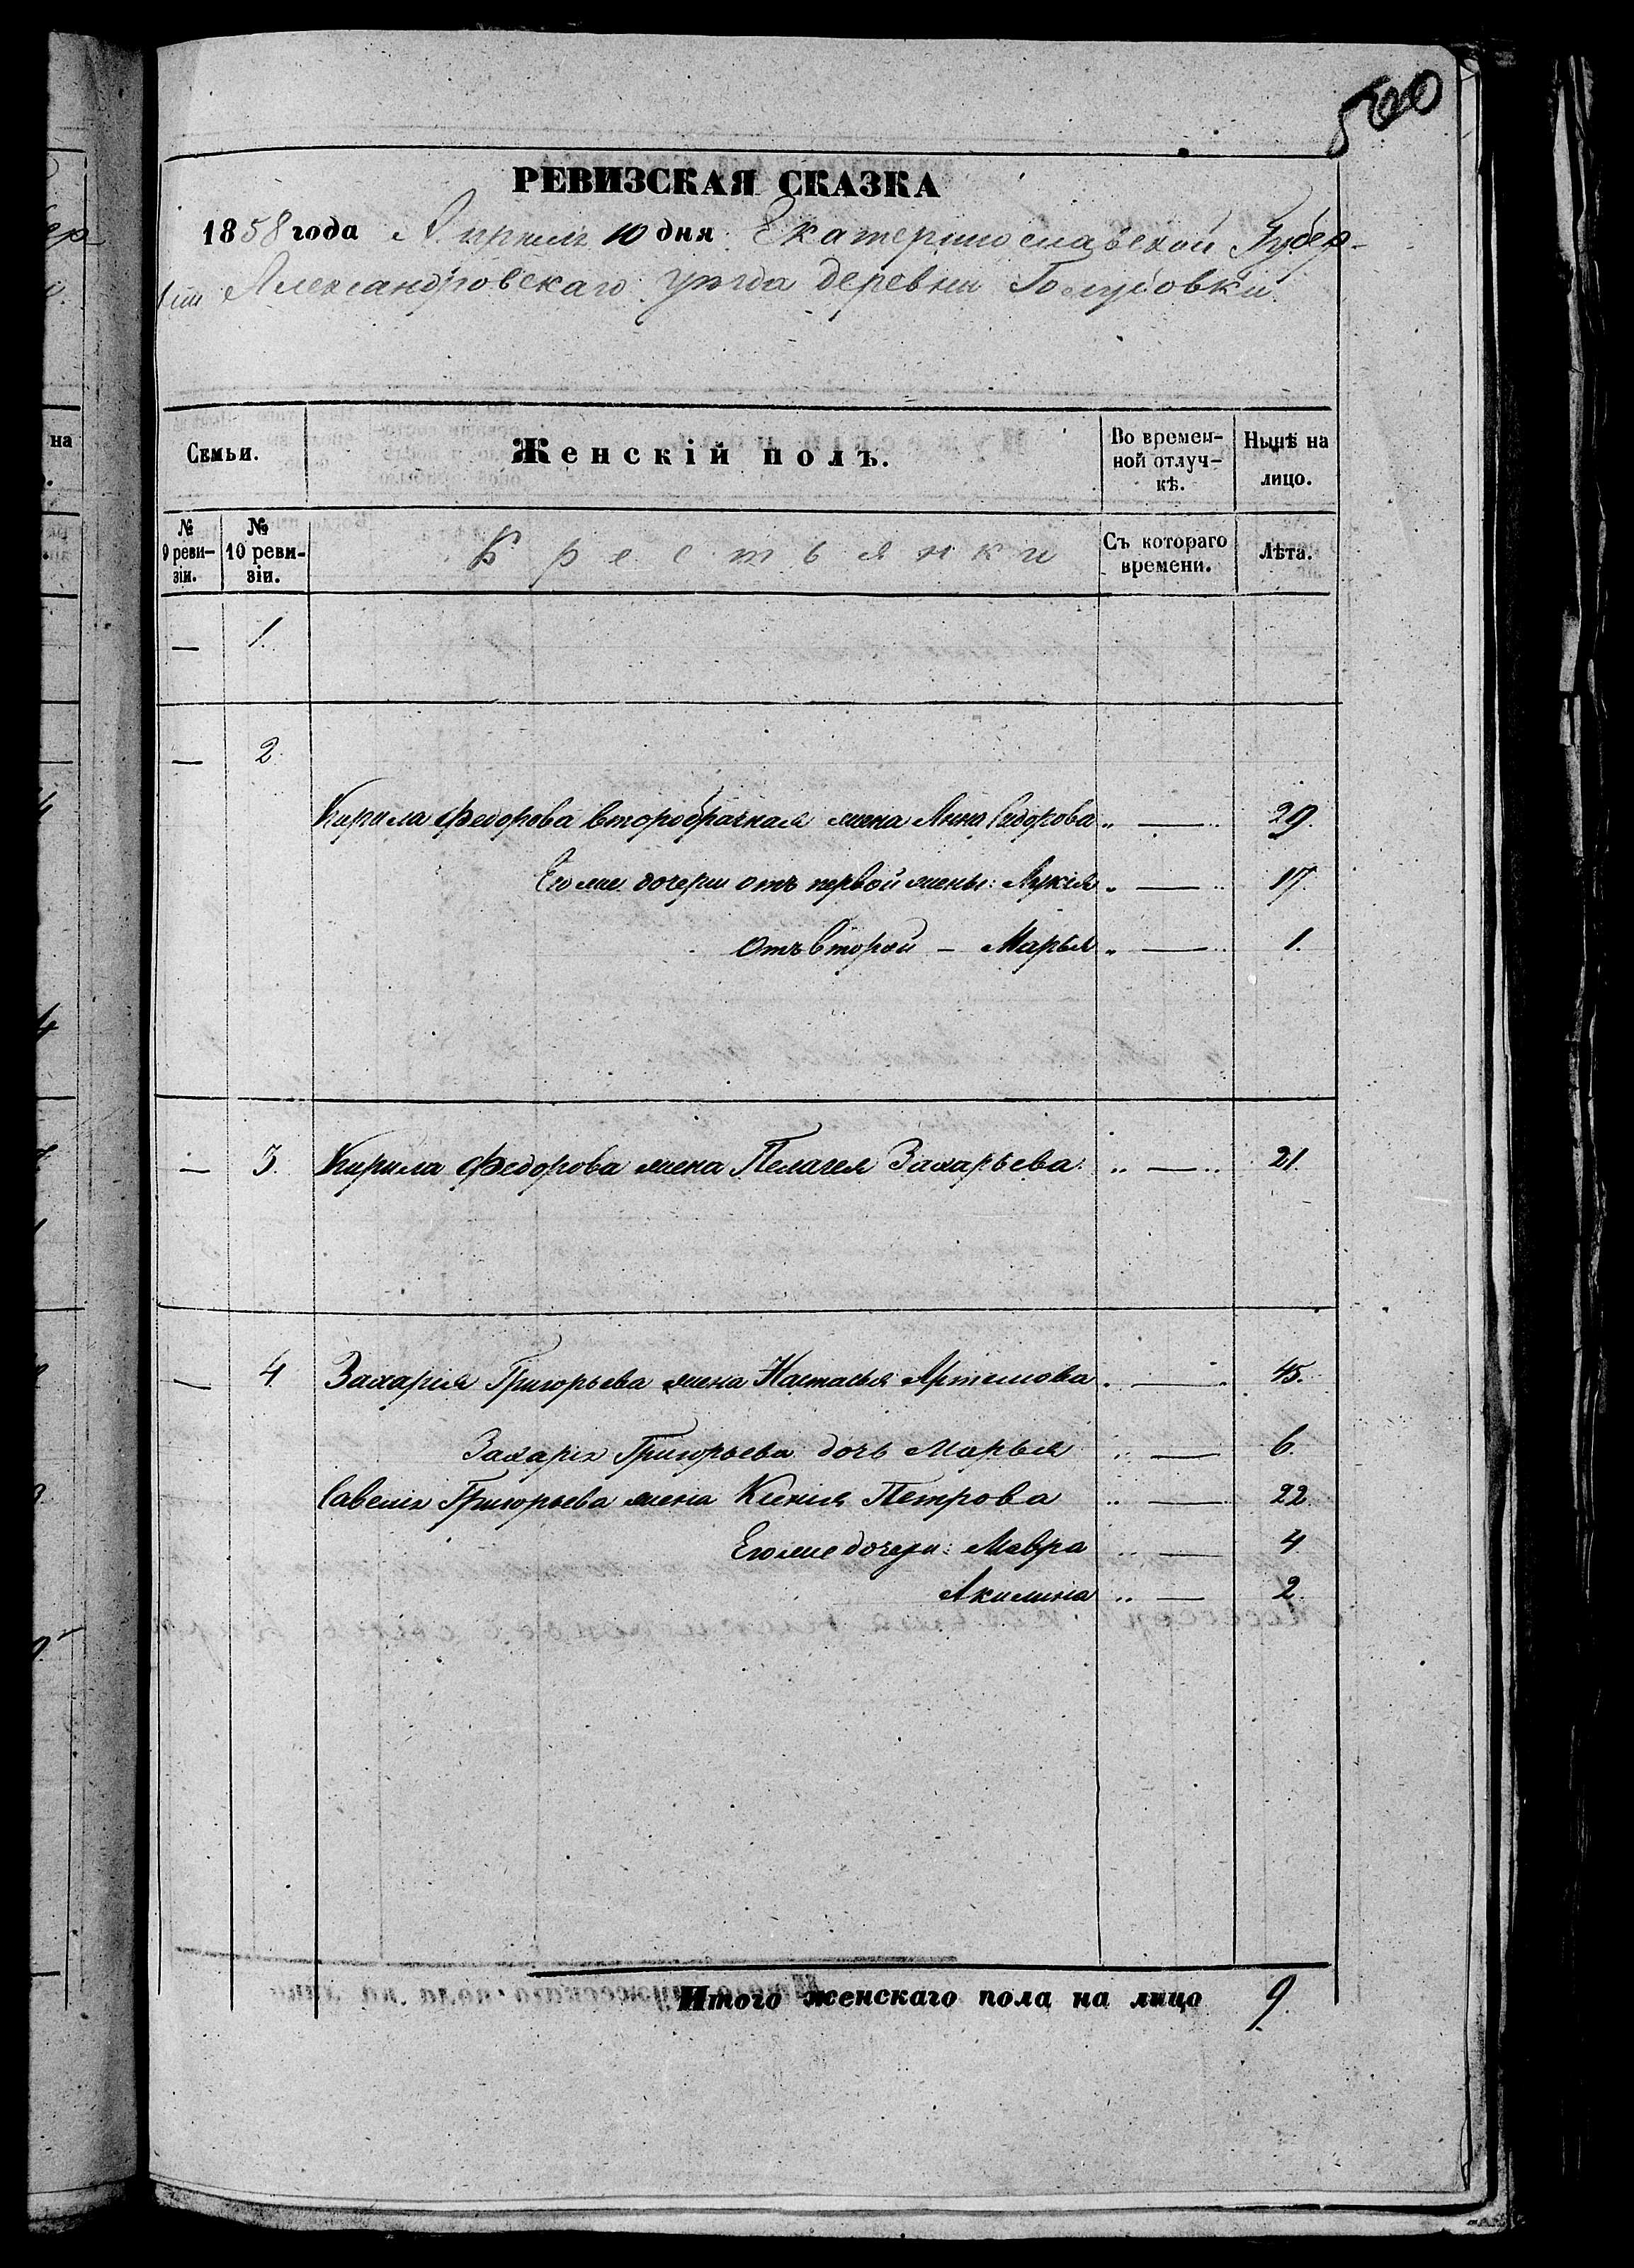 500
РЕВИЗСКАЯ СКАЗКА
1858 года Апреля 10 дня Екатеринославской Губер-
ніи Александровскаго уѣзда деревни Голубовки
Семьи.
Женскій полъ.
Во времен-
ной отлуч-
кѣ.
Нынѣ на
лицо.
№
9 реви-
зіи.
№
10 реви-
зіи.
Крестьянки
Съ котораго
времени.
Лѣта.
— 1.
— 2.
Кирила Федорова второбрачная жена Анна Сидорова „ — „ 29.
Его же дочери отъ первой жены: Лукія „ — „ 17.
отъ второй — Марья „ — „ 1.
— 3. Кирила Федорова жена Пелагея Захарьева „ — „ 21.
— 4. Захарія Григорьева жена Настасья Артемова „ — „ 45.
Захарія Григорьева дочь Марья „ — 6.
Савелія Григорьева жена Ксенія Петрова „ — 22.
Его же дочери: Мавра „ — 4.
Акилина „ — 2.
Итого женскаго пола на лицо 9.